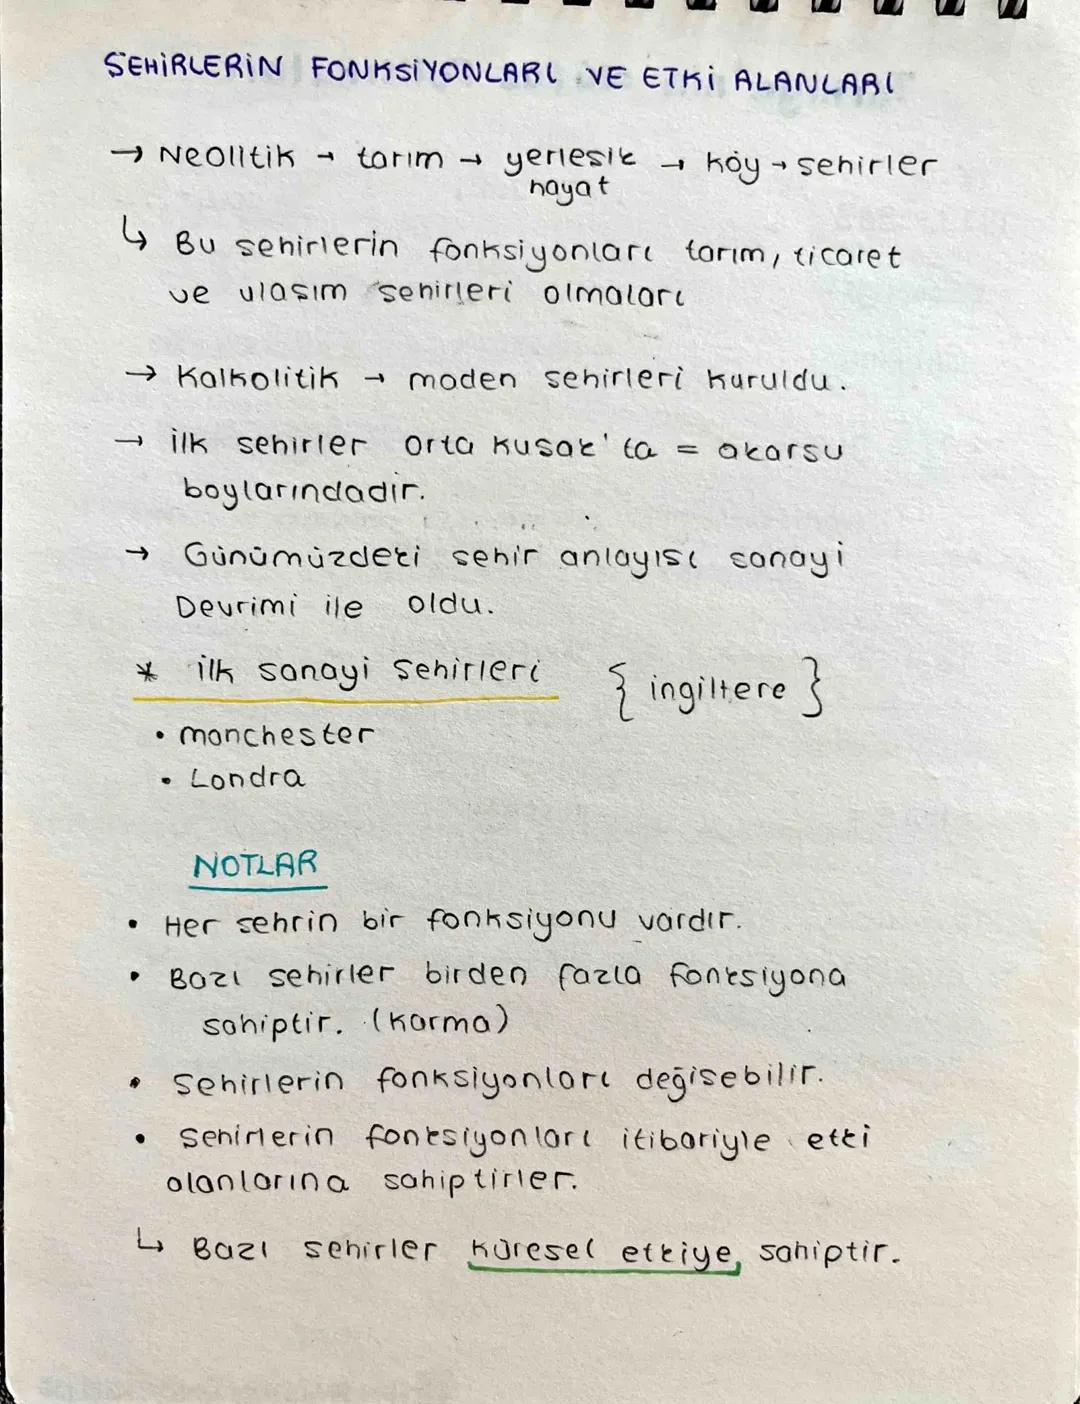 ŞEHİRLERİN FONKSİYONLARI VE ETKİ ALANLARI
→ Neolitik → tarım → yerlesik → köy → sehirler
hayat
↳ Bu sehirlerin fonksiyonları tarım, ticaret
ve ulasım sehirleri olmaları
→ Kalkolitik → maden sehirleri kuruldu.
→ ilk sehirler orta kusak'ta = akarsu
boylarındadır.
→ Günümüzdeki sehir anlayısı sanayi
Devrimi ile oldu.
* ilk sanayi sehirleri { ingiltere }
• manchester
• Londra
NOTLAR
• Her sehrin bir fonksiyonu vardır.
• Bazı sehirler birden fazla fonksiyona
sahiptir. (Karma)
• sehirlerin fonksiyonları değisebilir.
• sehirlerin fonksiyonları itibariyle etki
alanlarına sahiptirler.
↳ Bazı sehirler küresel etkiye, sahiptir.